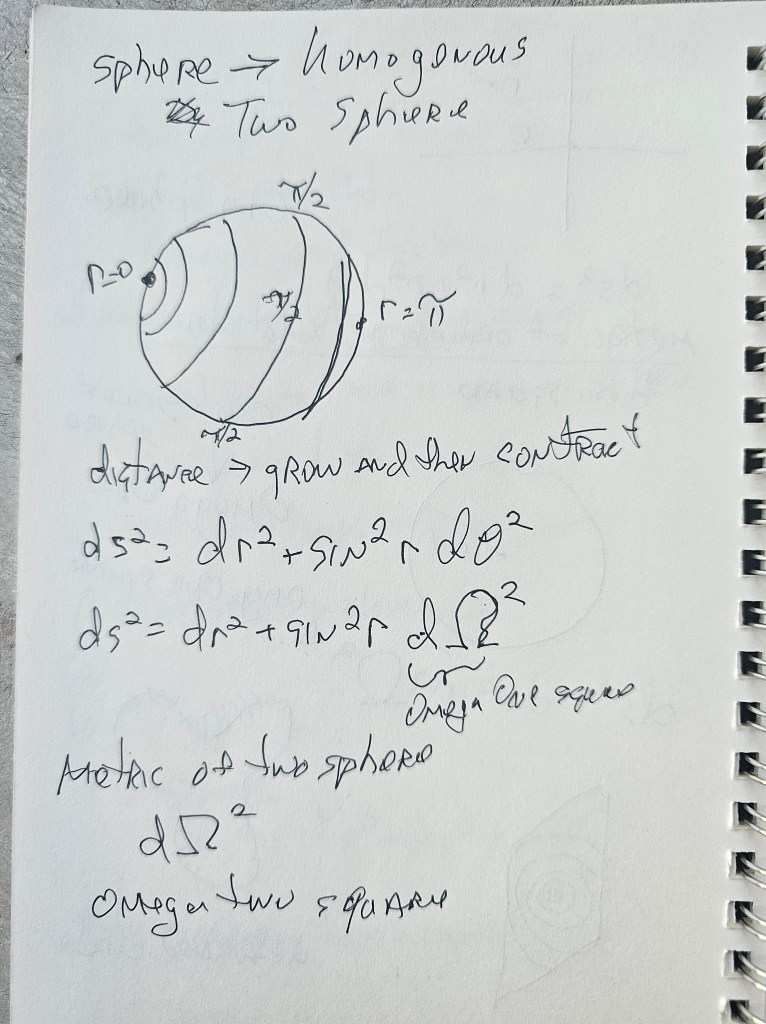 sphere → homogenous
Two Sphere
π/2
r=0
π/2
r = π
π/2
distance → grow and then contract
ds² = dr² + sin² r dθ²
ds² = dr² + sin² r dΩ²
Omega One square
Metric of two sphere
dΩ²
Omega two square